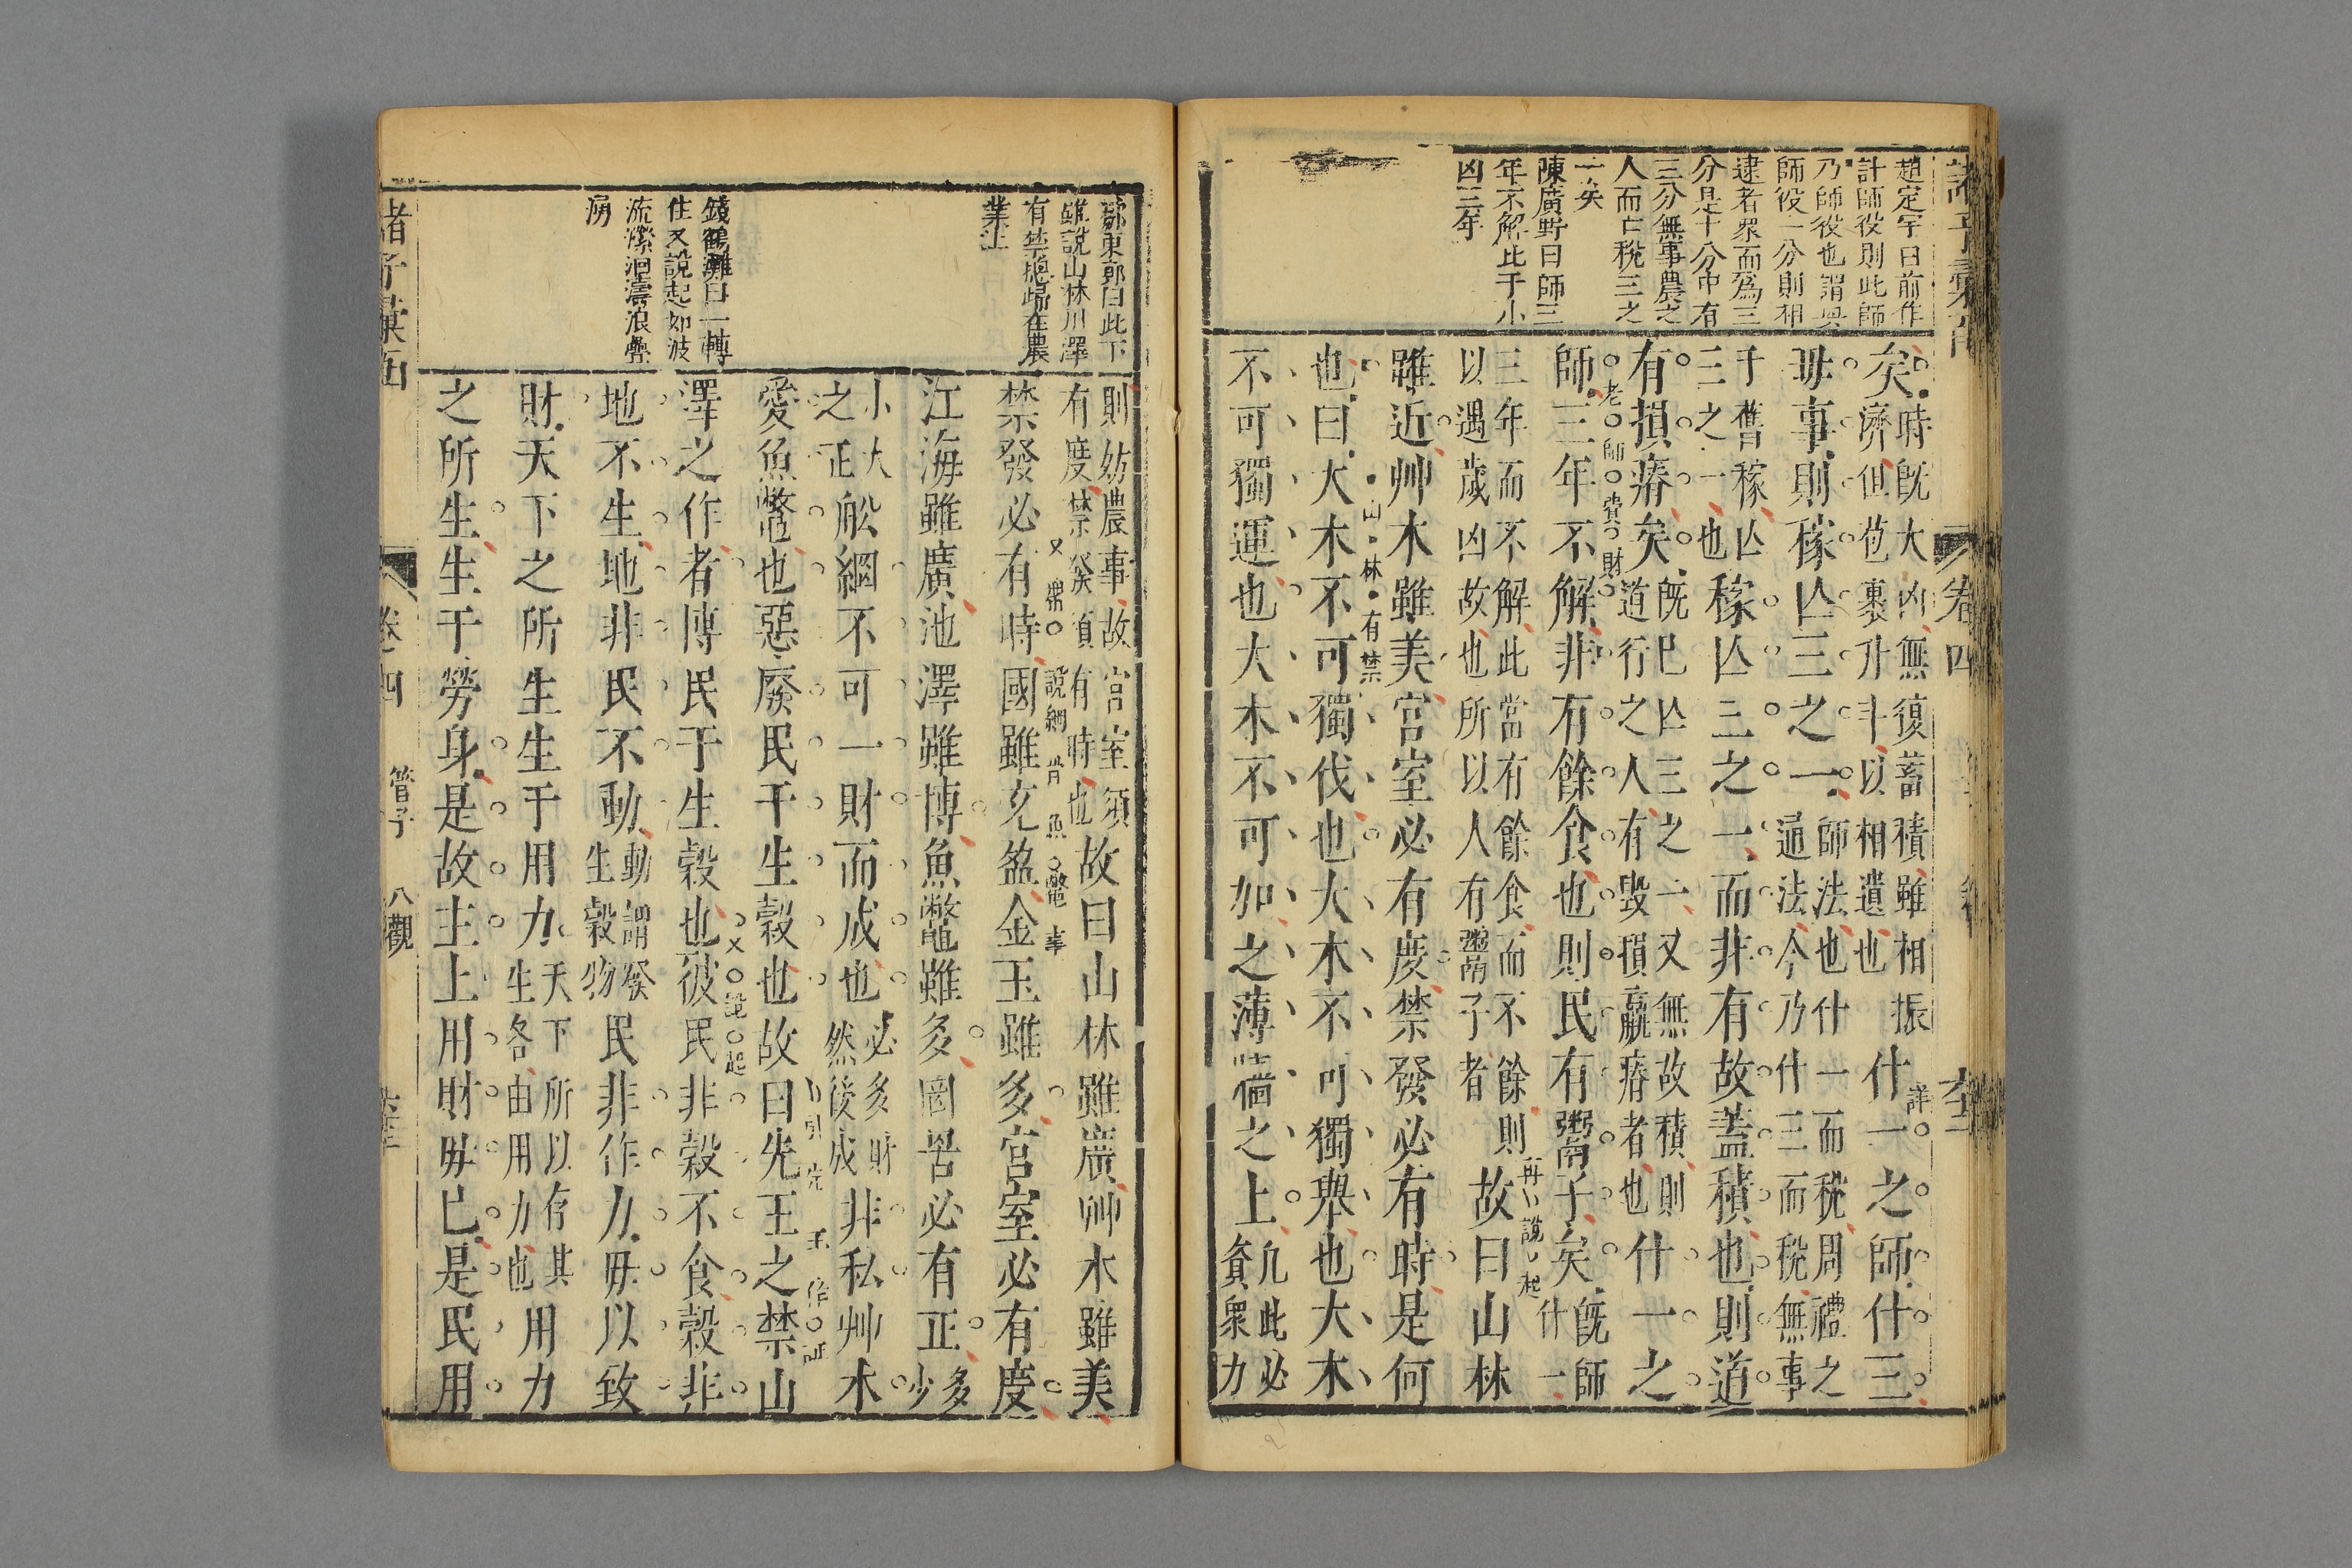 趙定宇曰前作
計師役則此師
乃師役也謂與
師役一分則相
逮者眾而為三
分是十分中有
三分無事農之
人而亡稅三之
一矣
陳廣野曰師三
年不解比于小
凶三年
矣時旣大凶無復蓄積雖相振
濟但苞裹升斗以相遺也什一之師什三
毋事則稼亾三之一師法也什一而稅周禮之
通法今乃什三而稅無事
于舊稼亾
三之一也稼亾三之一而非有故蓋積也則道
有損瘠矣旣已亾三之一又無故積則
道行之人有毀損羸瘠者也什一之
師三年不解非有餘食也則民有鬻子矣旣師
什一
三年而不解此當有餘食而不餘則
以遇歲凶故也所以人有鬻子者故曰山林
雖近艸木雖美宮室必有度禁發必有時是何
也曰大木不可獨伐也大木不可獨舉也大木
不可獨運也大木不可加之薄牆之上凡此必
資眾力
老師費財
再說起
山林有禁
卷四
郭東郭曰此下
雖說山林川澤
有禁總歸在農
業上
錢鶴灘曰一轉
住又說起如波
流瀠洄濤浪疊
房
則妨農事故宮室須
有度禁發須有時也故曰山林雖廣艸木雖美
禁發必有時國雖充盈金玉雖多宮室必有度
江海雖廣池澤雖博魚鼈雖多罔罟必有正多
少
小大
之正舩網不可一財而成也必多財
然後成非私艸木
愛魚鼈也惡廢民于生穀也故曰先王之禁山
澤之作者博民于生穀也彼民非穀不食穀非
地不生地非民不動動謂發
生穀物民非作力毋以致
財天下之所生生于用力天下所以存其
生各由用力也用力
之所生生于勞身是故主上用財毋已是民用
又帶說網罟魚鼈事
引先王作証
又說起
卷四
管子
八觀